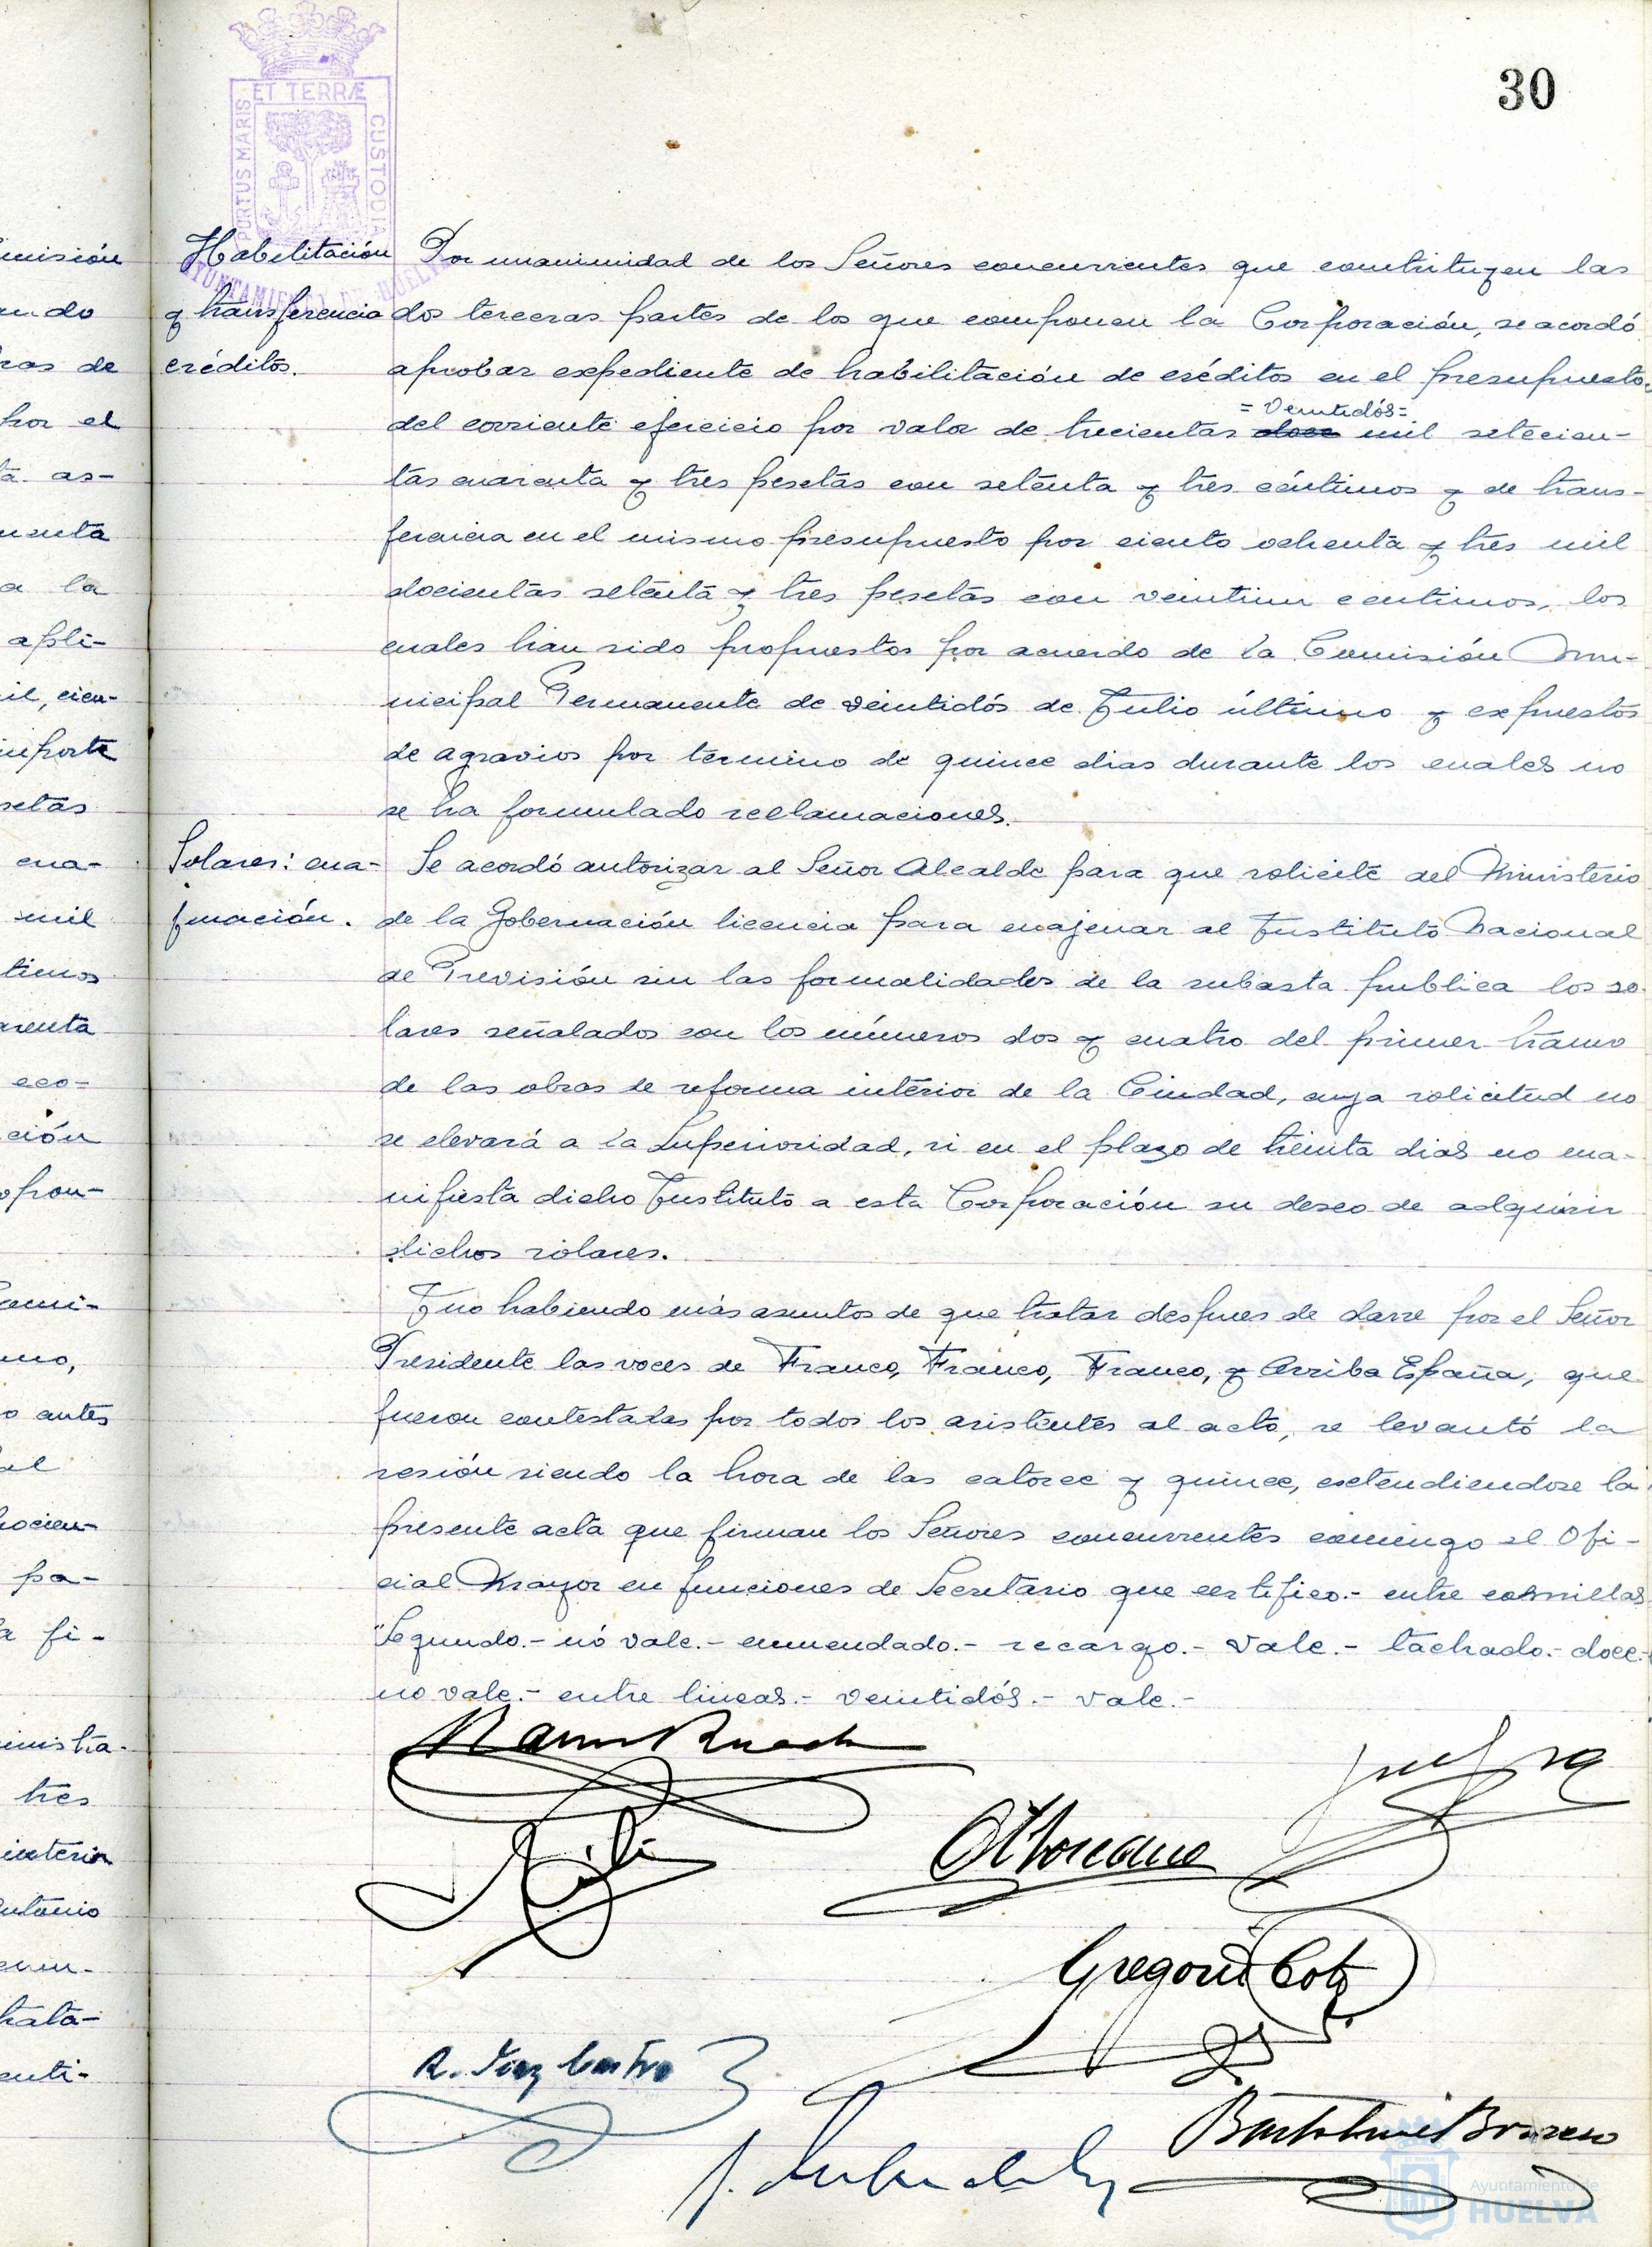 30
PORTUS MARIS ET TERRÆ CUSTODIA
AYUNTAMIENTO DE HUELVA
Habilitación
y transferencia
créditos.
Por unanimidad de los Señores concurrentes que contituyen las
dos terceras partes de los que componen la Corporación, se acordó
aprobar expediente de habilitación de créditos en el presupuesto
= Veintidós=
del corriente ejercicio por valor de trecientas doce mil setecien-
tas cuarenta y tres pesetas con setenta y tres céntimos y de trans-
ferencia en el mismo presupuesto por ciento ochenta y tres mil
docientas setenta y tres pesetas con veintiun centimos, los
cuales han sido propuestos por acuerdo de la Comisión Mu-
nicipal Permanente de veintidós de Julio último y expuestos
de agravios por termino de quince dias durante los cuales no
se ha formulado reclamaciones.
Solares: ena-
jenación.
Se acordó autorizar al Señor Alcalde para que solicite del Ministerio
de la Gobernación licencia para enajenar al Instituto Nacional
de Previsión sin las formalidades de la subasta publica los so-
lares señalados con los números dos y cuatro del primer tramo
de las obras de reforma interior de la Ciudad, cuya solicitud no
se elevará a la Superioridad, si en el plazo de treinta dias no ma-
nifiesta dicho Instituto a esta Corporación su deseo de adquirir
dichos solares.
Y no habiendo más asuntos de que tratar despues de darse por el Señor
Presidente las voces de Franco, Franco, Franco, y Arriba España, que
fueron contestadas por todos los asistentes al acto, se levantó la
sesión siendo la hora de las catorce y quince, extendiendose la
presente acta que firman los Señores concurrentes conmigo el Ofi-
cial Mayor en funciones de Secretario que certifico.- entre comillas
"Segundo.- nó vale.- enmendado.- recargo.- vale.- tachado.- doce.-
no vale.- entre lineas.- veintidós.- vale.-
Gregorio
R. Diaz Castro
Ayuntamiento de
HUELVA
misión
ando
ras de
por el
as-
a la
apli-
il, cien-
importe
setas
ena-
mil
timos
arenta
eco-
ción
opon-
antes
al
hocien-
pa-
a fi-
inistra-
tres
interior
Antonio